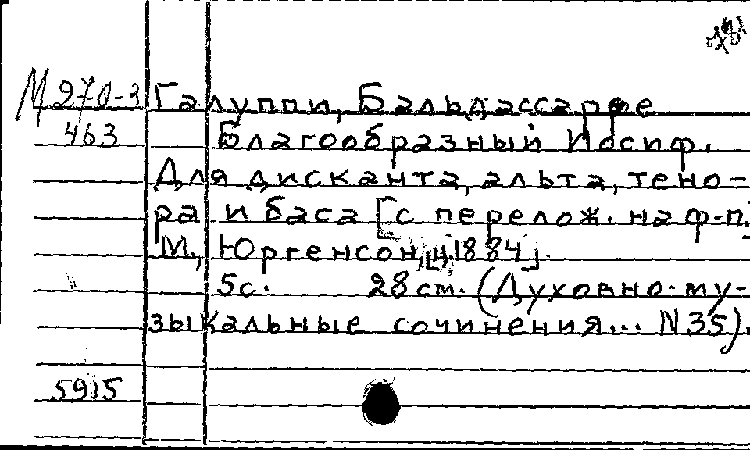 М 270-3 Галуппи, Бальдассарре
463 Благообразный Иосиф.
Для дисканта, альта, тено-
ра и баса [с перелож. на ф-п.]
М., Юргенсон, ц. 1884].
5с. 28 см. (Духовно-му-
зыкальные сочинения... N 35).
5915